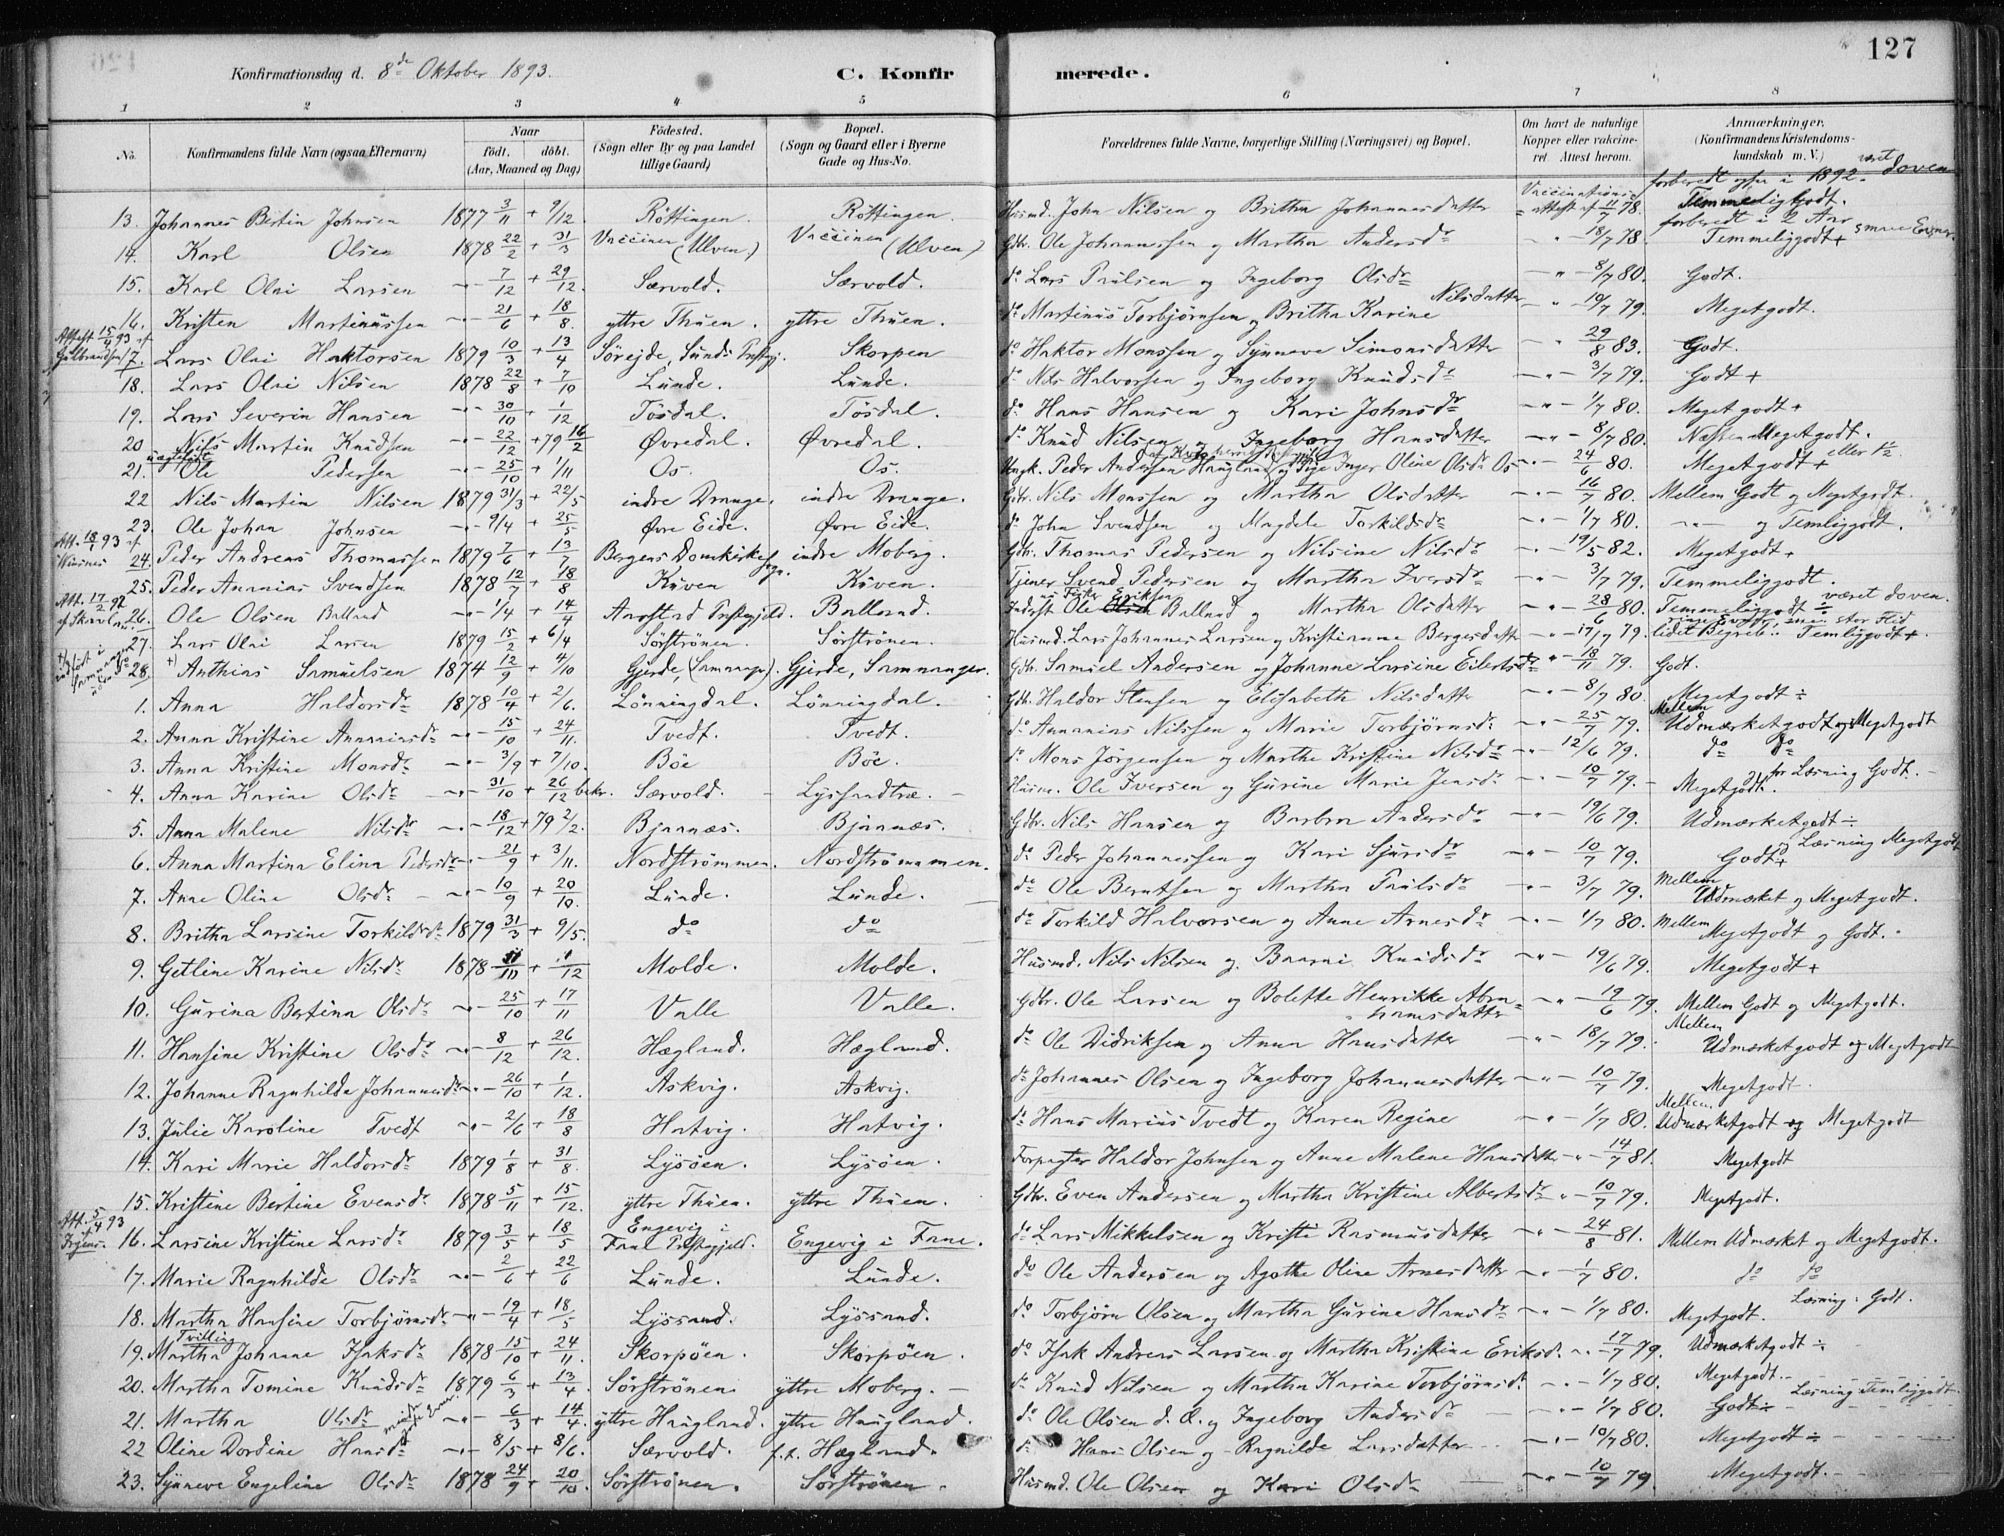 127
Konfirmationsdag d. 8de Oktober 1893.
C. Konfirmerede.
1 2 3 4 5 6 7 8
No. Konfirmandens fulde Navn (ogsaa Efternavn) Naar födt. döbt. (Aar, Maaned og Dag) Födested. (Sogn eller By og paa Landet tillige Gaard) Bopæl. (Sogn og Gaard eller i Byerne Gade og Hus-No. Forældrenes fulde Navne, borgerlige Stilling (Næringsvei) og Bopæl. Om havt de naturlige Kopper eller vakcineret. Attest herom. Anmærkninger. (Konfirmandens Kristendomskundskab m. V.)
forberedt ogsaa i 1892. været doven
13. Johannes Bertin Johnsen 1877 3/11 + 9/12 Röttingen. Röttingen. Husmd. John Nilsen og Britha Johannesdatter Vaccinationsattest af 11/7 78. Temmelig Godt.
forberedt i 2 Aar
14. Karl Olsen 1878 22/2 + 31/3 Vaccinen (Ulven) Vaccinen (Ulven) Gdbr. Ole Johannessen og Martha Andersdr - " - 18/7 78. Temmeliggodt + smaa Evner.
15. Karl Olai Larsen - " - 7/12 + 29/12 Særvold. Særvold. do Lars Paulsen og Ingeborg Olsdr - " - 8/7 80. Godt.
16. Kristen Martinussen - " - 21/6 + 18/8 yttre Thuen. yttre Thuen. do Martinus Torbjørnsen og Britha Karine Nilsdatter - " - 19/7 79. Meget godt.
Attest 15/4 93 af Gulbrandsen 17. Lars Olai Haktorsen 1879 10/3 + 13/4 Sörejde, Sunds Prstgj. Skorpen do Haktor Monssen og Synneve Simonsdatter - " - 29/8 83. Godt.
18. Lars Olai Nilsen 1878 22/8 + 7/10 Lunde. Lunde. do Nils Halvorsen og Ingeborg Knudsdr - " - 3/7 79. Godt +
19. Lars Severin Hansen - " - 30/10 + 1/12 Tösdal. Tösdal. do Hans Hansen og Kari Johnsdr - " - 1/7 80. Meget godt +
20 Nils Martin Knudsen - " - 22/12 + 79 16/2 Øvredal. Øvredal. do Knud Nilsen og Ingeborg Hansdatter - " - 8/7 80. Næsten Meget godt.
uægtefødt
21. Ole Pedersen - " - 25/10 + 1/11 Os. Os. Ungk. Peder Andersen Haugland og Pige Inger Oline Olsdr Os - " - 24/6 80. Meget godt + eller 1½
22 Nils Martin Nilsen 1879 31/3 + 22/5 indre Drange. indre Drange. Gdbr. Nils Monssen og Martha Olsdatter - " - 16/7 80. Mellem Godt og Meget godt.
23. Ole Johan Johnsen - " - 9/4 + 25/5 Øvre Eide. Øvre Eide. do John Svendsen og Magdele Torkildsdr - " - 1/7 80. - " - og Temliggodt.
Att. 18/1 93 af 24. Peder Andreas Thomassen 1879 7/6 + 13/7 Bergens Domkirkesogn. indre Moberg. Gdbr. Thomas Pedersen og Nilsine Nilsdr - " - 19/5 82. Meget godt +
25. Peder Ananias Svendsen 1878 12/7 + 18/8 Kuven Kuven. Tjener Svend Pedersen og Martha Iversdr - " - 3/7 79. Temmeliggodt.
Att. 17/2 92 af Skavlan 26. Ole Olsen Balland - " - 1/4 + 14/4 Aarstad Prestegjeld. Balland. Inderst Ole Eriksen Balland og Martha Olsdatter - " - 28/6 80. Temmeliggodt ÷ været doven.
27. Lars Olai Larsen 1879 15/2 + 6/4 Sörströnen. Sörströnen. Husmd. Lars Johannes Larsen og Kristianne Bergesdatt - " - 19/7 79. lidet Begreb: Temliggodt +.
28. +) Anthias Samuelsen 1874 12/9 + 4/10 Gjerde, (Samnanger). Gjerde, Samnanger. Gdb. Samuel Andersen og Johanne Larsine Eilertsdr " - 18/11 79. Godt.
1. Anna Haldorsdr 1878 10/4 + 2/6. Lönningdal. Lönningdal. Gdb. Haldor Stensen og Elisabeth Nilsdatter - " - 8/7 80. Meget godt ÷
2. Anna Kristine Ananiasdr - " - 15/10 + 24/11. Tvedt. Tvedt. do Annanias Nilssen og Marie Torbjørnsdr - " - 25/7 79. Mellem Udmærket godt og Meget godt
3. Anna Kristine Monsdr - " - 3/9 + 7/10. Böe Böe. do Mons Jørgensen og Marthe Kristine Nilsdr - " - 12/6 79. do do
4. Anna Karine Olsdr - " - 31/10 + 26/12 bekr. Særvold. - Lyssandtræ. - Husm. Ole Iversen og Gurine Marie Jensdr - " - 10/7 79. - Meget godt. for Læsning Godt. -
5. Anna Malene Nilsdr - " - 18/12 + 79 2/2. Bjaanæs. Bjaanæs. Gdbr. Nils Hansen og Barbra Andersdr " - 19/6 79. Udmærket godt ÷
6. Anna Martina Elina Pedersdr - " - 21/9 + 3/11. Nordströmmen. Nordströmmen. do Peder Johannessen og Kari Sjursdr - " - 10/7 79. Godt + Læsning Meget godt
7. Anne Oline Olsdr - " - 10/9 + 20/10. Lunde. Lunde. do Ole Berntsen og Martha Paulsdr - " - 3/7 79. Mellem Udmærket og Meget godt.
8. Britha Larsine Torkildsdr 1879 31/3 + 9/5. do do do Torkild Halvorsen og Anne Arnesdr - " - 1/7 80. Mellem Meget godt og Godt.
9. Getline Karine Nilsdr 1878 /11 + 1/12 Molde. Molde. Husmd. Nils Nilsen og Knudsdr - " - 19/6 79. Meget godt +
10. Gurina Bertina Olsdr - " - 25/10 + 17/11 Valle Valle. Gdbr. Ole Larsen og Bolette Henrikke Abrahamsdatter - " - 19/6 79. Mellem Godt og Meget godt.
11. Hansine Kristine Olsdr - " - 8/12 + 26/12. Hægland. Hægland. do Ole Didriksen og Anna Hansdatter - " - 18/7 79. Mellem Udmærket godt og Meget godt
12. Johanne Ragnhilda Johannesdr - " - 26/10 + 1/12. Askvig. Askvig. do Johannes Olsen og Ingeborg Johannesdatter - " - 10/7 79. Meget godt.
13. Julie Karoline Tvedt - " - 2/6 + 18/8 Hatvig. Hatvig. do Hans Marius Tvedt og Karen Regine - " - 1/7 80. Mellem Udmærket godt og Meget godt
14. Kari Marie Haldorsdr 1879 1/8 + 31/8. Lysöen. Lysöen. Forpagter Haldor Johnsen og Anne Malene Hansdatter - " - 14/7 81. Meget godt
15. Kristine Bertine Evensdr 1878 5/11 + 15/12. yttre Thuen. yttre Thuen. Gdbr. Even Andersen og Martha Kristine Albertsdr - " - 10/7 79. Meget godt.
Att. 5/4 93 16. Larsine Kristine Larsdr 1879 3/5 + 18/5 Engevig i Fane Prstegjeld. Engevig i Fane. do Lars Mikkelsen og Kristi Rasmusdatter - " - 24/8 81. Mellem Udmærket og Meget godt.
17. Marie Ragnhilde Olsdr - " - 2/6 + 22/6 Lunde. Lunde. do Ole Andersen og Agathe Oline Arnesdatter - " - 1/7 80. do do
18. Martha Hansine Torbjørnsdr - " - 19/4 + 18/5 Lyssand. Lyssand. do Torbjørn Olsen og Martha Gurine Hansdr - " - 1/7 80. Meget godt. Læsning: Godt.
Tvilling
19. Martha Johanne Isaksdr 1878 15/10 + 24/11. Skorpöen. Skorpöen. do Isak Andreas Larsen og Martha Kristine Eriksd. - " - 17/7 79. Udmærket godt ÷
20. Martha Tomine Knudsdr 1879 6/3 + 13/4. Sörströnen. yttre Moberg. - do Knud Nilsen og Martha Karine Torbjørnsd. - " - 1/7 80. Meget godt.
21. Martha Olsdr - " - 6/3 + 14/4. yttre Haugland. yttre Haugland. do Ole Olsen d. Æ. og Ingeborg Andersdr - " - 1/7 80. Godt ÷ Læsning Temliggodt.
22 Oline Dordine Hansdr - " - 8/5 + 8/6. Særvold. f.t. Hægland. do Hans Olsen og Ragnilde Larsdatter - " - 10/7 80. Meget godt ÷
23. Synneve Engeline Olsdr 1878 24/9 + 20/10 Sörströnen. Sörströnen. Husmd. Ole Olsen og Kari Olsdr - " - 10/7 79. Meget godt.